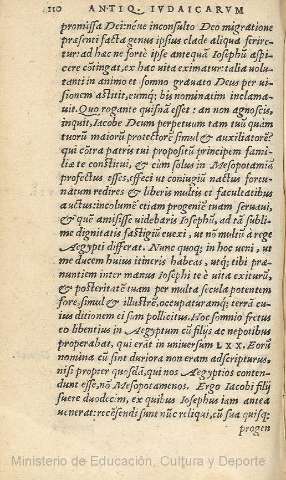 210 ANTIQ. IVDAICARVM
promissa Dei: néue inconsulto Deo migratione
præsenti facta genus ipsius clade aliqua ferire-
tur: ad hæc ne fortè ipse antequã Iosephũ aspi-
cere cõtingat, ex hac uita eximatur: talia uolu-
tanti in animo et somno grauato Deus per ui-
sionem astitit, eumq; bis nominatim inclama-
uit. Quo rogante quisnã esset: an non agnoscis,
inquit, Iacobe Deum perpetuum tam tuũ quàm
tuorũ maiorũ protectorẽ simul & auxiliatorẽ?
qui cõtra patris tui propositũ principem fami-
liæ te constitui, & cùm solus in Mesopotamiã
profectus esses, effeci ut coniugiũ nactus fortu-
natum redires & liberis multis et facultatibus
auctus: incolumẽ etiam progeniẽ tuam seruaui,
& quẽ amisisse uidebaris Iosephũ, ad tã subli-
me dignitatis fastigiũ euexi, ut nõ multũ à rege
Aegypti differat. Nunc quoq; in hoc ueni, ut
me ducem huius itineris habeas, utq; tibi præ-
nuntiem inter manus Iosephi te è uita exiturũ,
& posteritatẽ tuam per multa secula potentem
fore simul & illustrẽ, occupaturamq; terrã cu-
ius ditionem ei sum pollicitus. Hoc somnio fretus
eo libentius in Aegyptum cũ filijs ac nepotibus
properabat, qui erãt in uniuersum LXX. Eorũ
nomina cũ sint duriora non eram adscripturus,
nisi propter quosdã, qui nos Aegyptios conten-
dunt esse, nõ Mesopotamenos. Ergo Iacobi filij
fuere duodecim, ex quibus Iosephus iam antea
uenerat: recẽsendi sunt nũc reliqui, cũ sua quisq;
progen
Ministerio de Educación, Cultura y Deporte